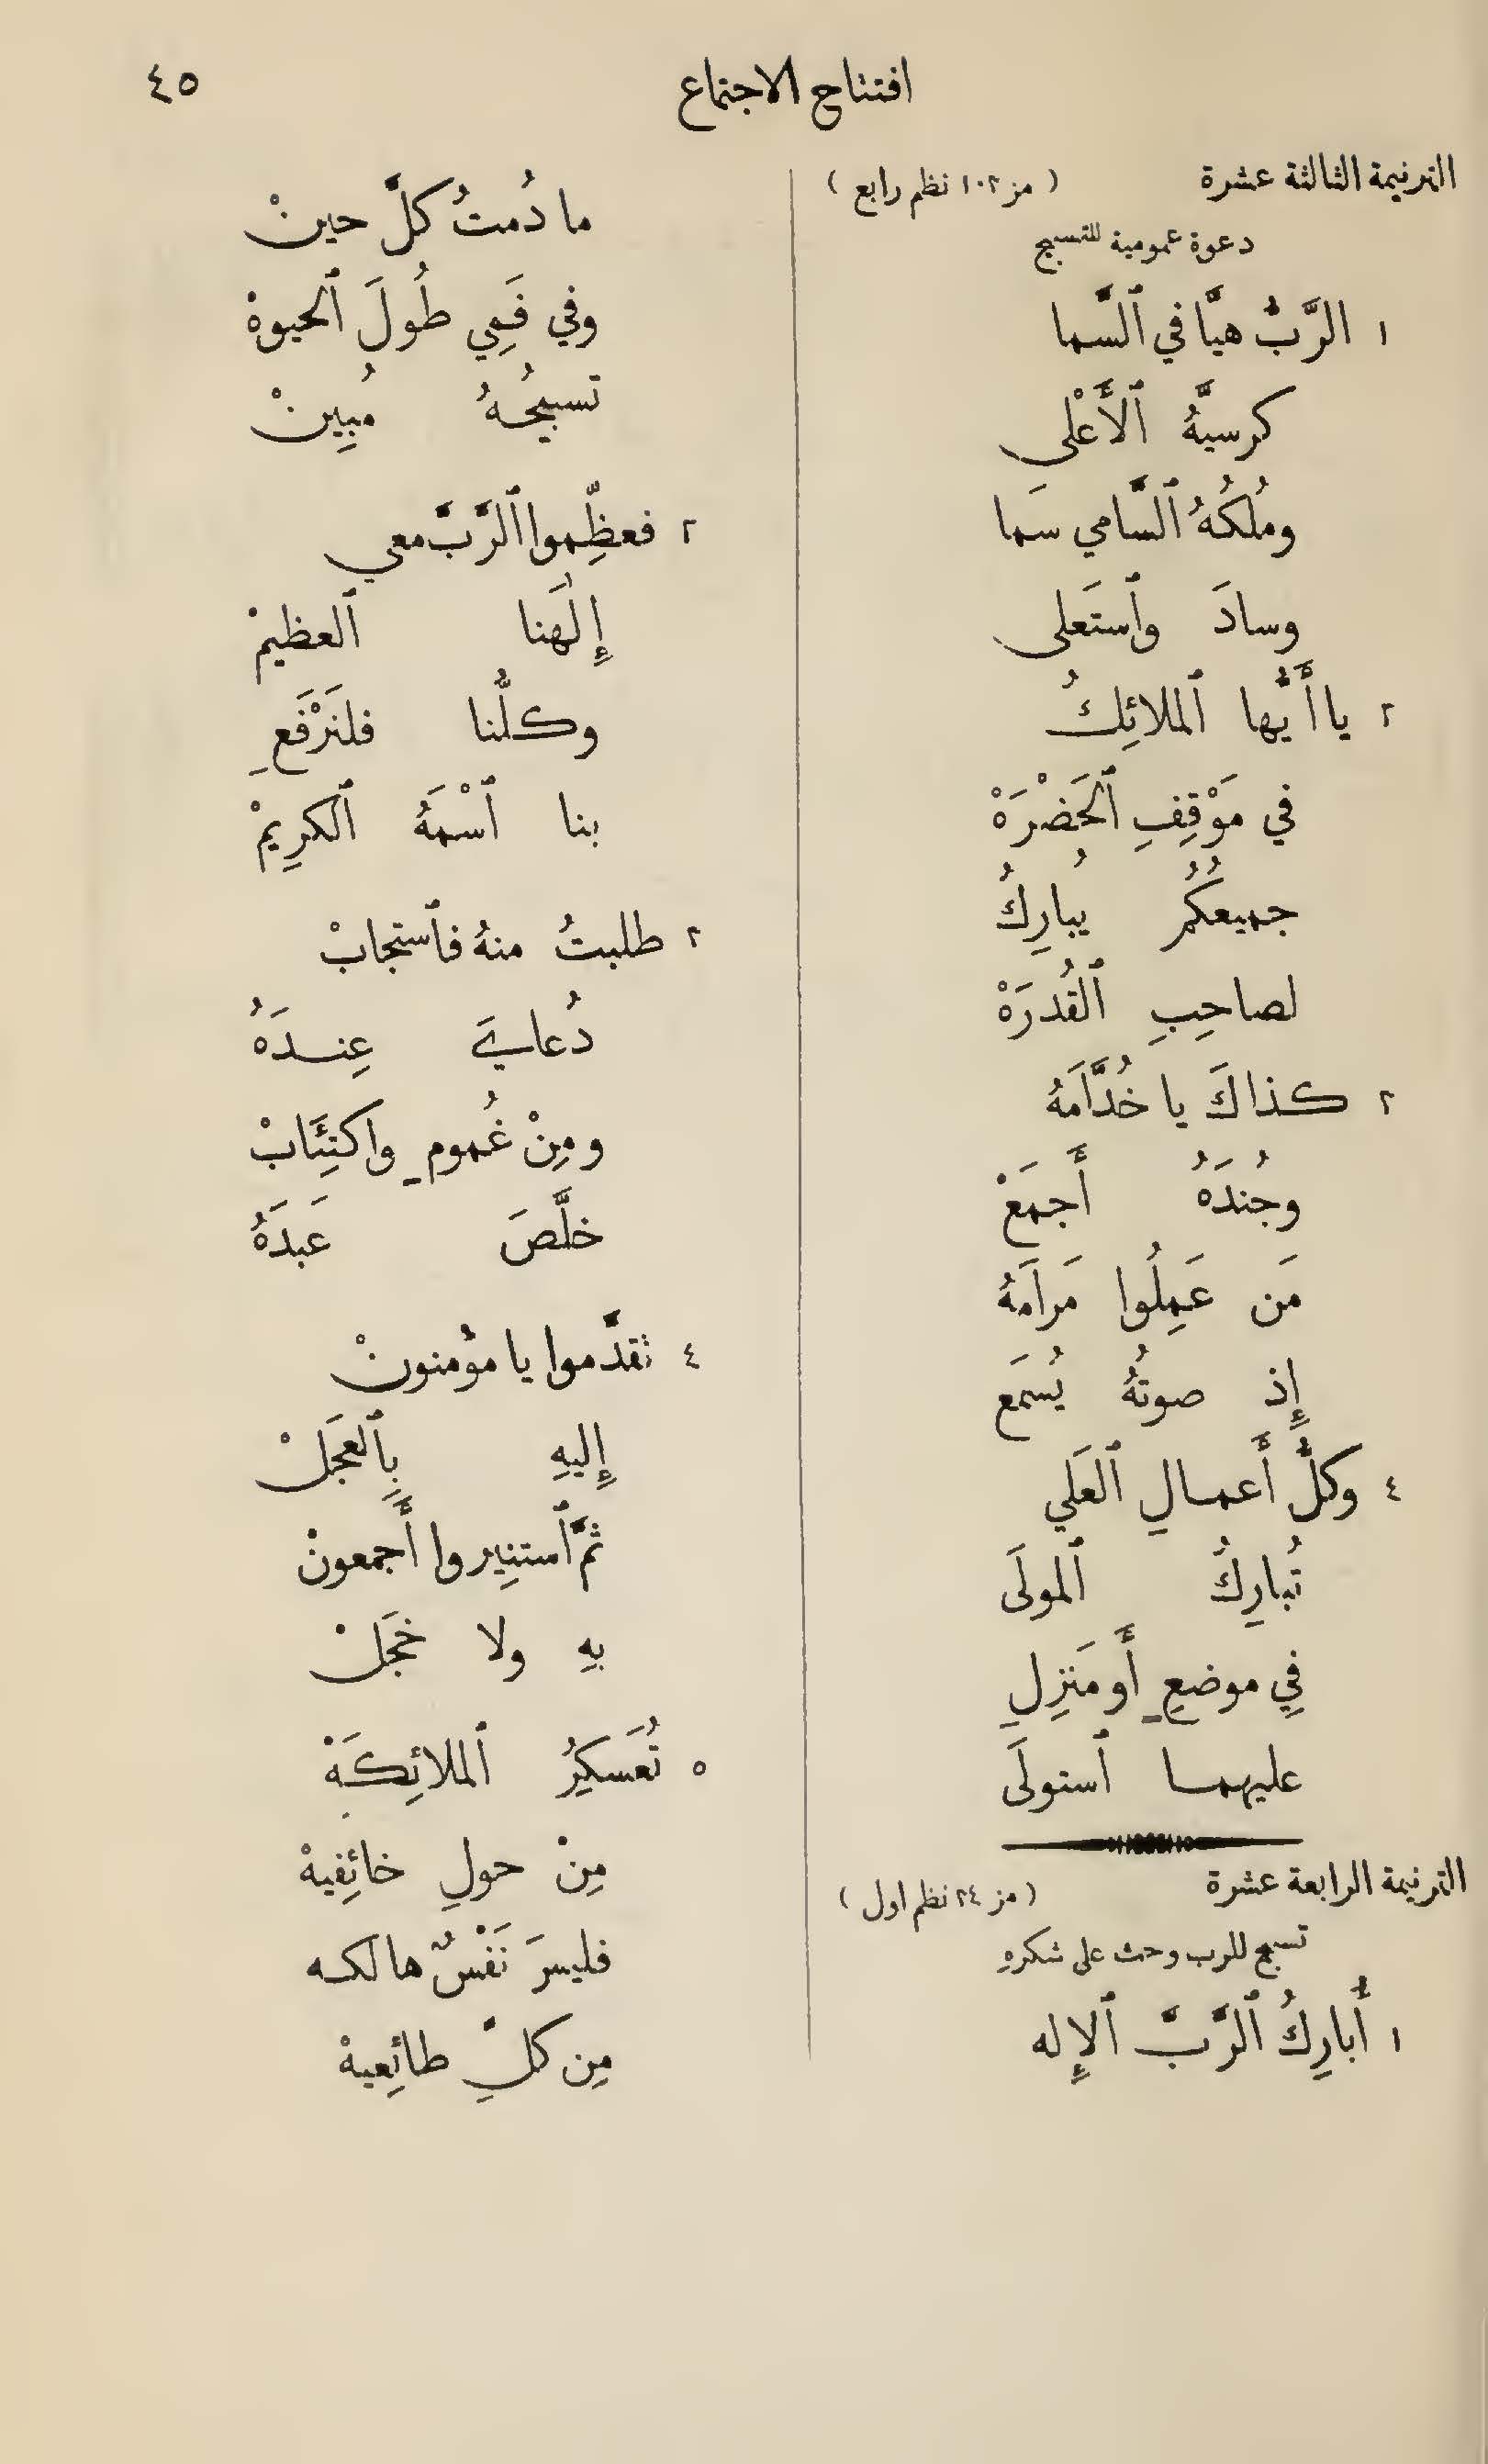 افتتاح الاجتماع
٤٥
الترنيمة الثالثة عشرة (مز ١٠٣ نظم رابع)
دعوة عمومية للتسبيح
١ الرَّبُّ هيَّا في ٱلسَّما
كرسيَّهُ ٱلأَعْلى
ومُلكُهُ ٱلسَّامي سَما
وسادَ وٱستَعلى
٢ يا أَيُّها ٱلملائِكُ
في مَوْقِفِ ٱلحَضْرَهْ
جميعُكُمُ يُبارِكُ
لصاحِبِ ٱلقُدرَهْ
٣ كذاكَ يا خُدَّامَهُ
وجُندَهُ أَجمَعْ
مَن عَمِلُوا مَرامَهُ
إِذ صوتُهُ يُسمَع
٤ وكلُّ أَعمالِ ٱلعَلي
تُبارِكُ ٱلمولَى
فِي موضعٍ أَو مَنزِلِ
عليهما ٱستولَى
الترنيمة الرابعة عشرة (مز ٣٤ نظم اول)
تسبيح للرب وحث على شكرهِ
١ أُبارِكُ ٱلرَّبَّ ٱلإِله
ما دُمتُ كلَّ حينْ
وفي فَمِي طُولَ ٱلحيوةْ
تسبيحُهُ مُبِينْ
٢ فعظِّموا ٱلرَّبَّ معي
إِلٰهَنا ٱلعظيمْ
وكلُّنا فلنَرْفَعِ
بنا ٱسْمَهُ ٱلكرِيمْ
٣ طلبتُ منهُ فٱستجابْ
دُعايَ عِندَهُ
ومِنْ غُمومٍ واكتِئَابْ
خلَّصَ عَبدَهُ
٤ تقدَّموا يا مؤْمنونْ
إِليهِ بِٱلعَجَلْ
ثمَّ ٱستنِيروا أَجمعونْ
بهِ ولا خجَلْ
٥ تُعَسكِرُ ٱلملائِكَهْ
مِنْ حولِ خائِفيهْ
فليسَ نَفْسٌ هالكه
مِن كلِّ طائِعيهْ